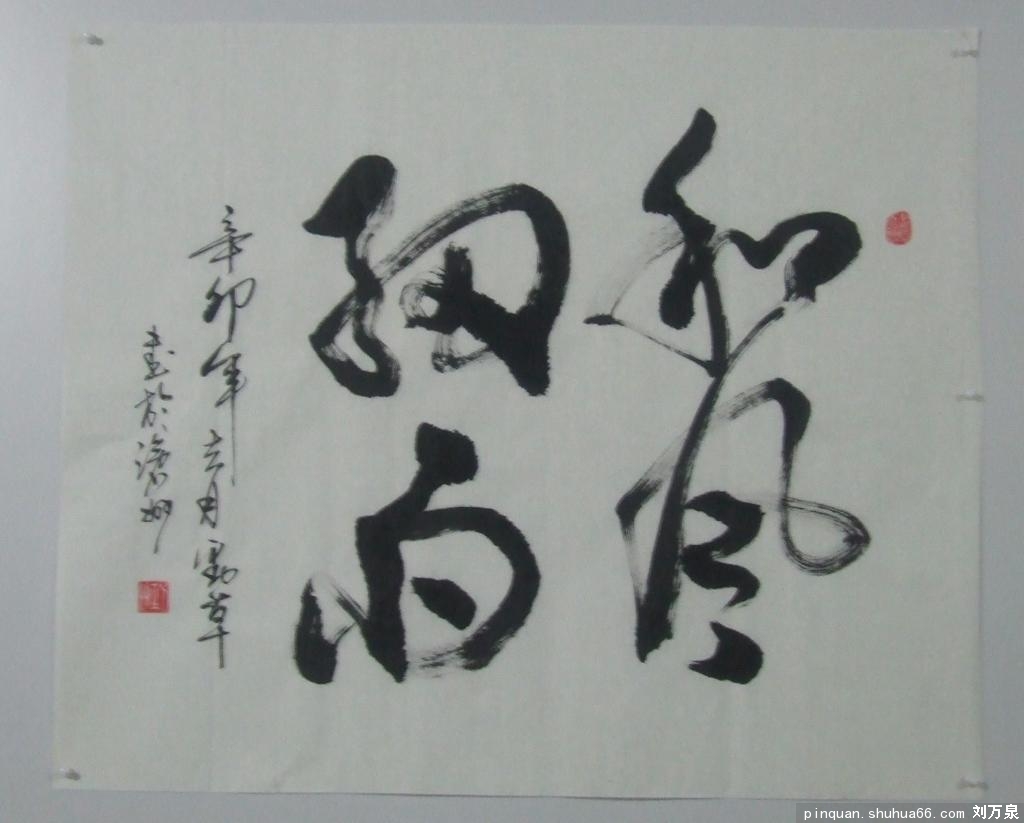 和风
细雨
辛卯年六月劲草
书于沧州
pinquan.shuhua66.com 刘万泉